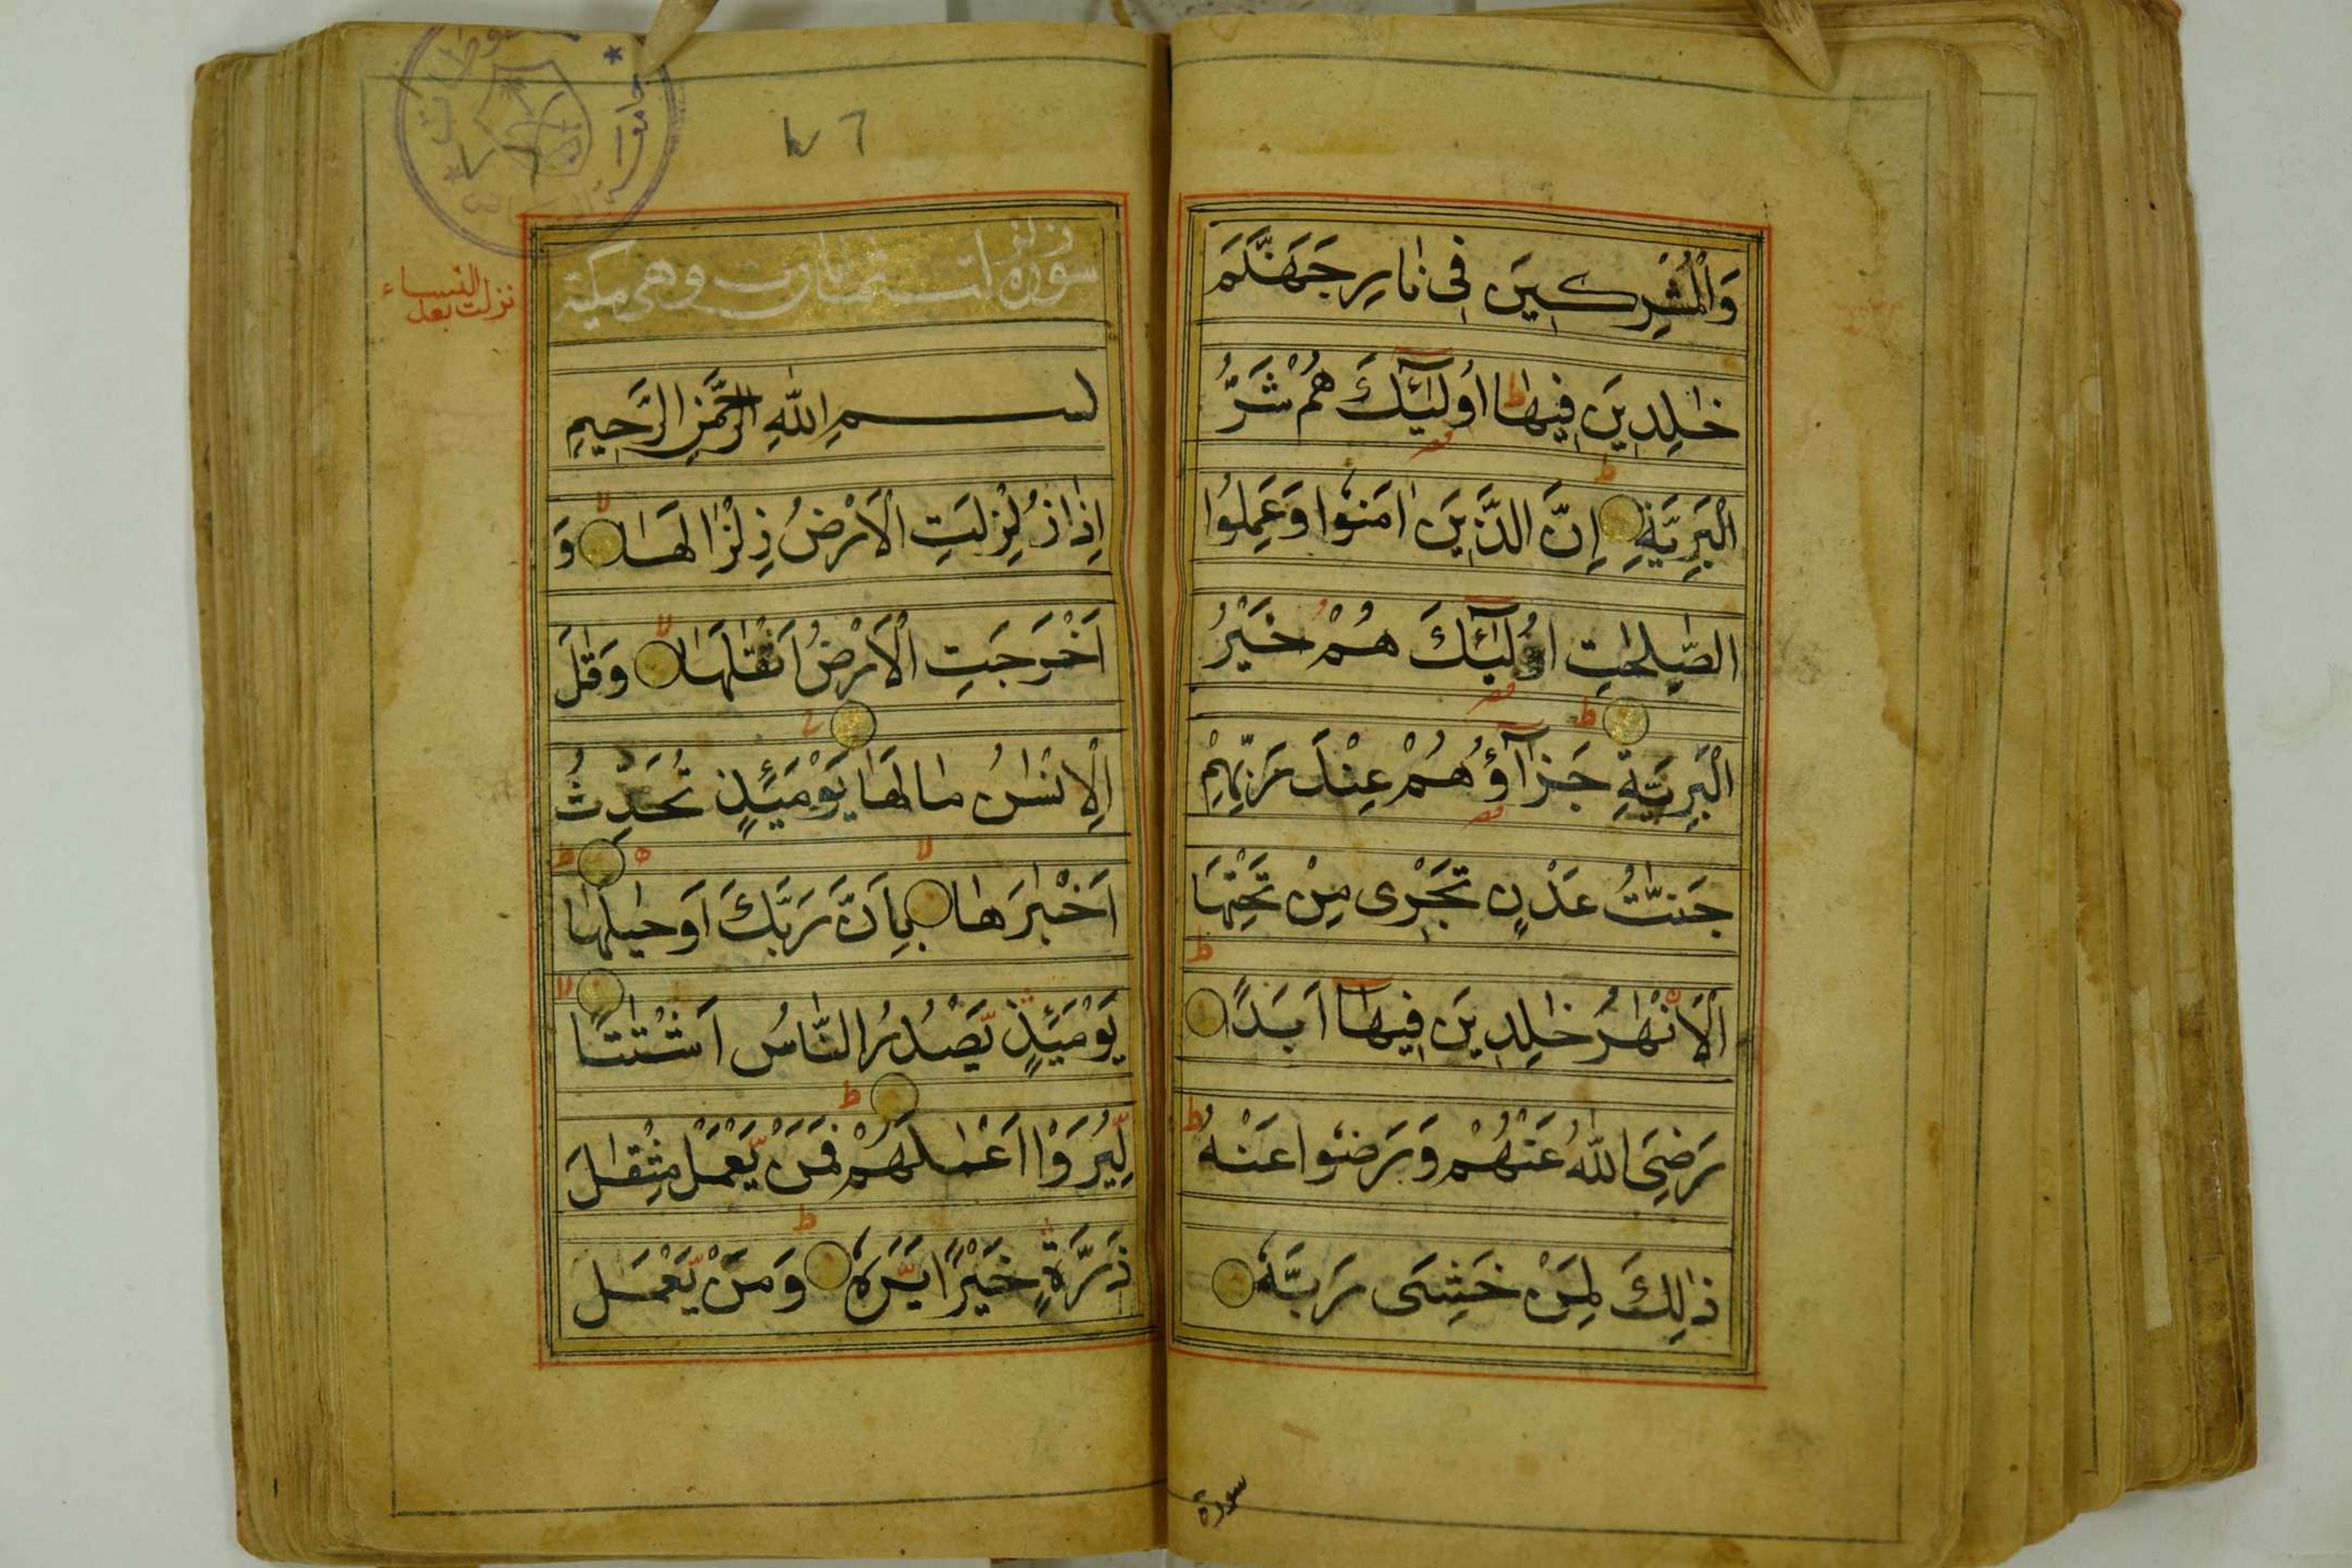 وَالْمُشْرِكِينَ فِي نَارِ جَهَنَّمَ
خٰلِدِينَ فِيهَا ط اُولٰٓئِكَ هُمْ شَرُّ
الْبَرِيَّةِ ط اِنَّ الَّذِينَ اٰمَنُوا وَعَمِلُوا
الصّٰلِحٰتِ اُولٰٓئِكَ هُمْ خَيْرُ
الْبَرِيَّةِ ط جَزَآؤُهُمْ عِنْدَ رَبِّهِمْ
جَنّٰتُ عَدْنٍ تَجْرِى مِنْ تَحْتِهَا
الْاَنْهٰرُ خٰلِدِينَ فِيهَآ اَبَدًا ط
رَضِىَ اللّٰهُ عَنْهُمْ وَرَضُوا عَنْهُ ط
ذٰلِكَ لِمَنْ خَشِىَ رَبَّهٗ
سورة
٧٦
جامعة
نزلت بعد النساء
سورة زلزلت ثمان ايات وهي مكية
بسم اللّٰهِ الرَّحْمٰنِ الرَّحِيمِ
اِذَا زُلْزِلَتِ الْاَرْضُ زِلْزَالَهَا لا وَ
اَخْرَجَتِ الْاَرْضُ اَثْقٰلَهَا لا وَقٰلَ
الْاِنْسٰنُ مَا لَهَا يَوْمَئِذٍ تُحَدِّثُ
اَخْبٰرَهَا لا بِاَنَّ رَبَّكَ اَوْحٰىلَهَا ط
يَوْمَئِذٍ يَّصْدُرُ النَّاسُ اَشْتٰتًا لا
لِّيُرَوْا اَعْمٰلَهُمْ ط فَمَنْ يَّعْمَلْ مِثْقٰلَ
ذَرَّةٍ خَيْرًا يَّرَهٗ ط وَمَنْ يَّعْمَل